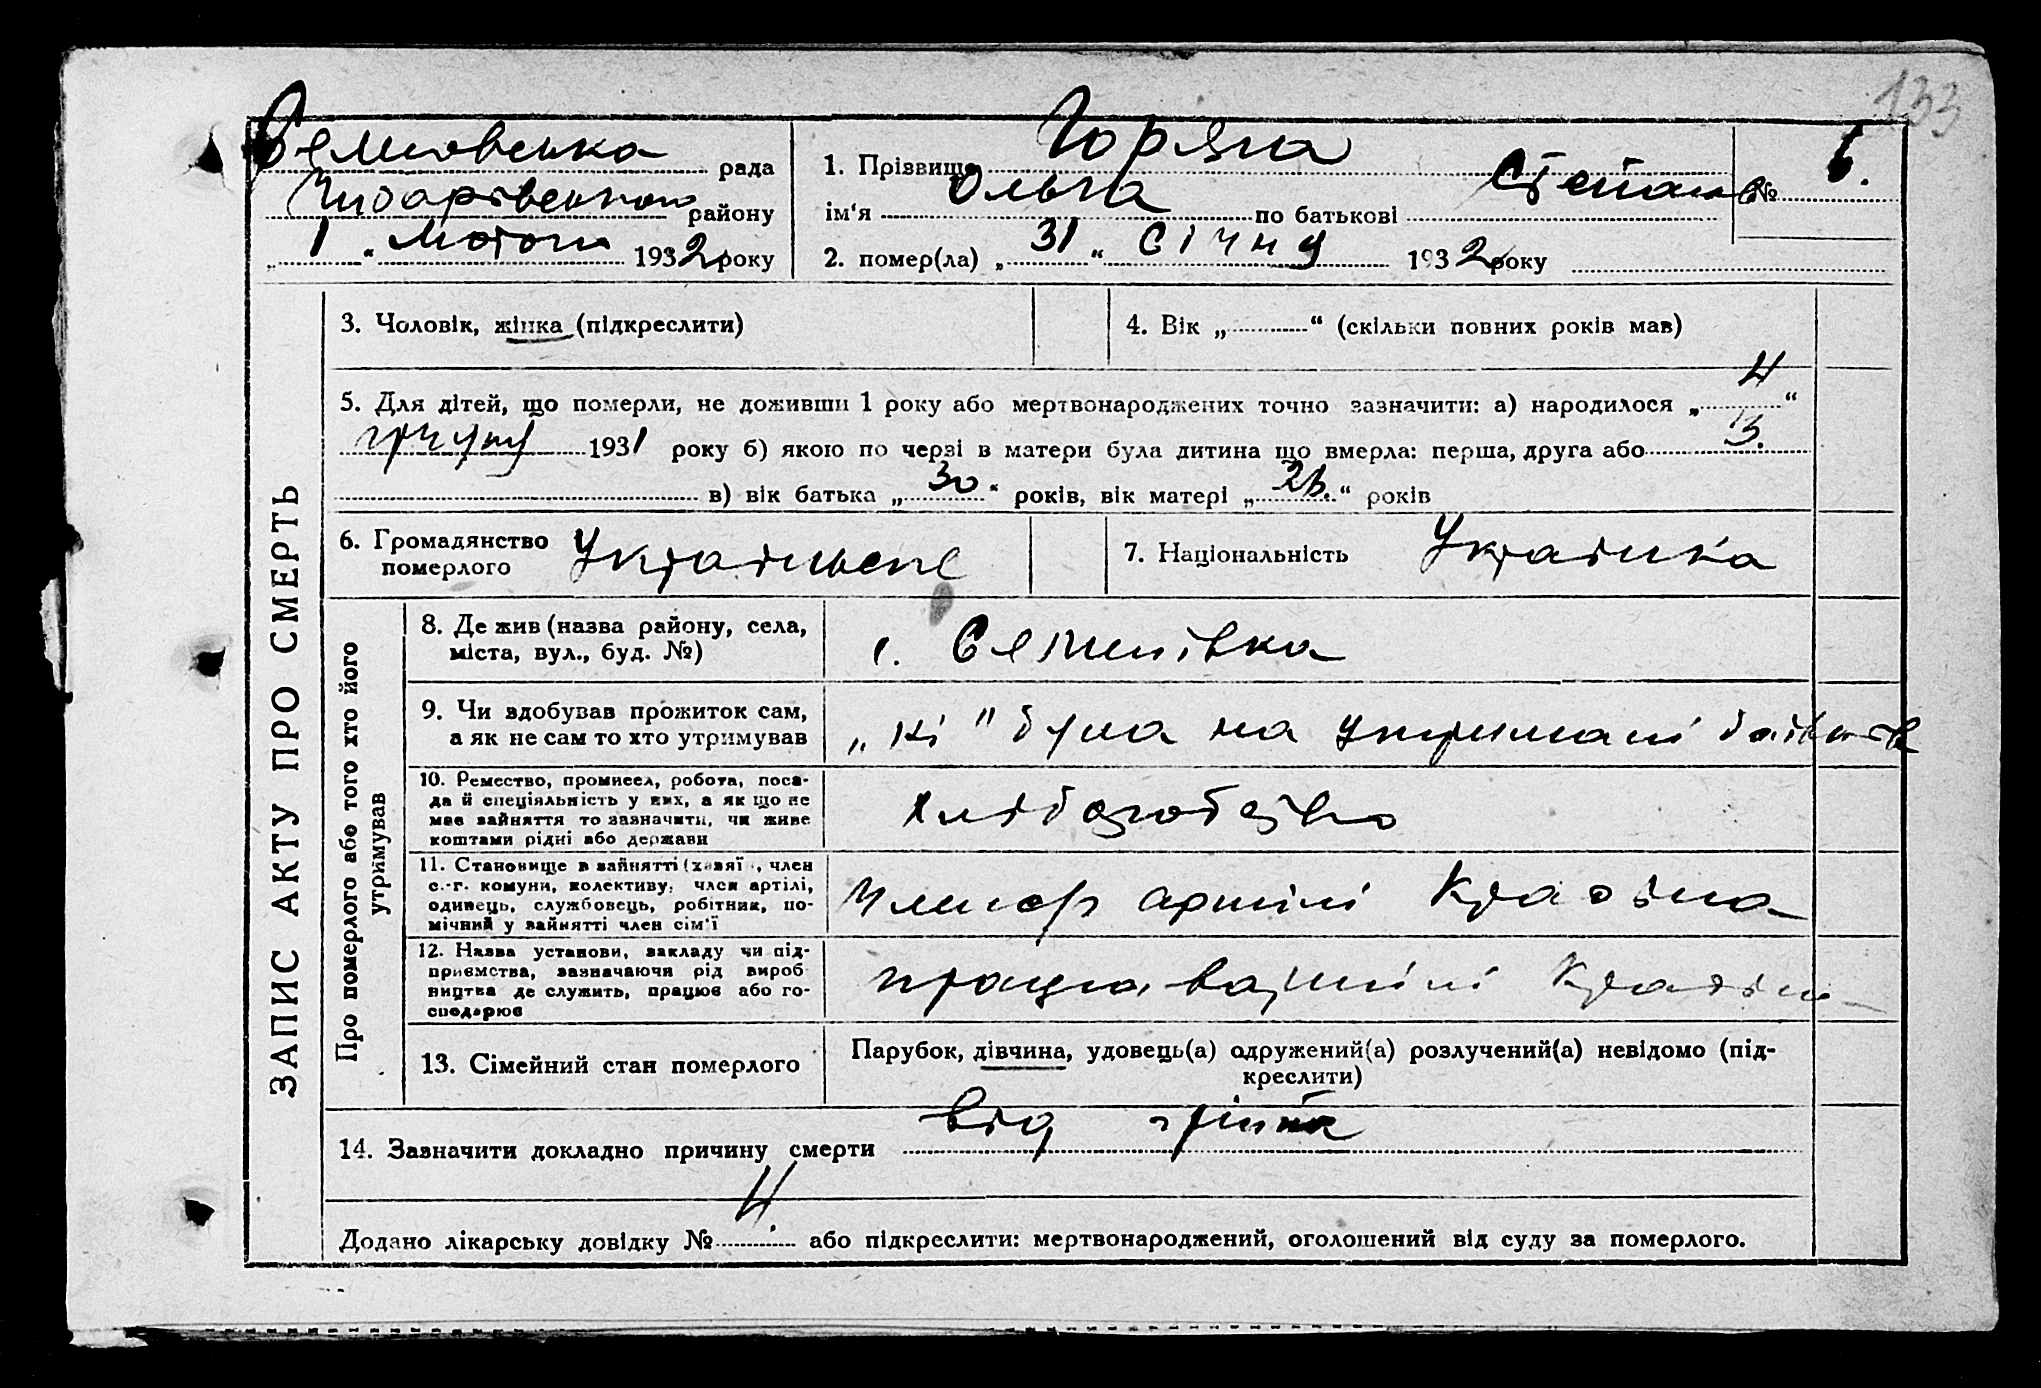 133
Семеновська рада
району
„ 1 “ лютого 1932 року
1. Прізвище Горяна
ім‘я Ольга по батькові Степан №
2. помер(ла) „ 31 “ січня 1932 року
ЗАПИС АКТУ ПРО СМЕРТЬ
3. Чоловік, жінка (підкреслити)
4. Вік „ “ (скільки повних років мав)
5. Для дітей, що померли, не доживши 1 року або мертвонароджених точно зазначити: а) народилося „ 4 “
грудня 1931 року б) якою по черзі в матери була дитина що вмерла: перша, друга або 3.
в) вік батька „ 30 “ років, вік матері „ “ років
6. Громадянство
померлого Українське
7. Національність Українка
Про померлого або того хто його
утримував
8. Де жив (назва району, села,
міста, вул., буд. №)
с. Семенівка
9. Чи здобував прожиток сам,
а як не сам то хто утримував
„Ні“ була на утримані батьків
10. Ремество, промисел, робота, поса-
да й спеціяльність у них, а як що не
має зайняття то зазначити, чи живе
коштами рідні або держави
хліборобство
11. Становище в зайнятті (хазяї , член
с.-г. комуни, колективу, член артілі,
одинець, службовець, робітник, по-
мічний у зайнятті член сім‘ї
артілі
12. Назва установи, закладу чи під-
приємства, зазначаючи рід вироб
ництва де служить, працює або го-
сподарює
працює в артілі
13. Сімейний стан померлого
Парубок, дівчина, удовець(а) одружений(а) розлучений(а) невідомо (під-
креслити)
14. Зазначити докладно причину смерти від гріпа
Додано лікарську довідку № або підкреслити: мертвонароджений, оголошений від суду за померлого.